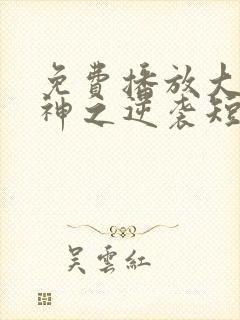 免費播放大
神之逆袭短
吴雲紅